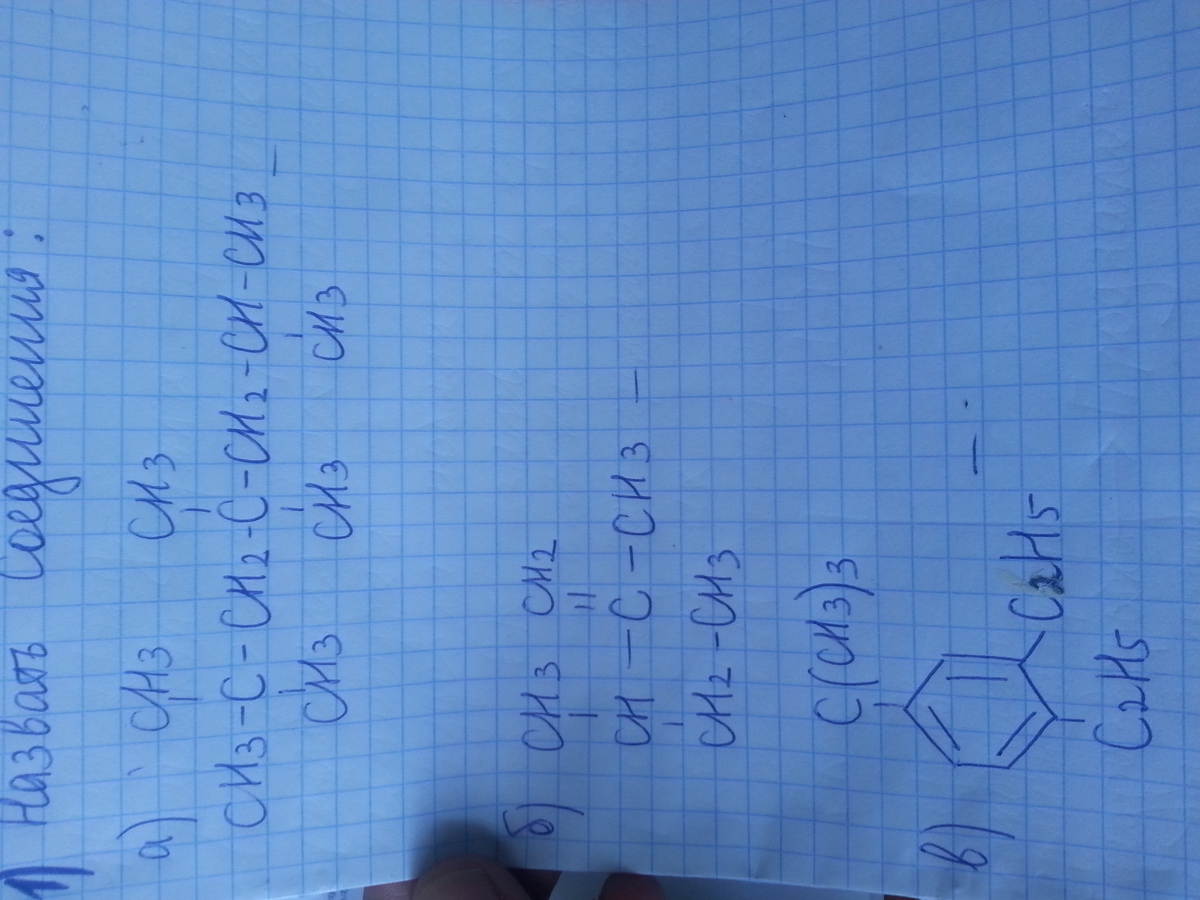 1) Назвать соединения:
а) CH3 CH3
CH3-C-CH2-C-CH2-CH-CH3 —
CH3 CH3 CH3
б) CH3 CH2
CH — C — CH3 —
CH2-CH3
C(CH3)3
в) —
C2H5
C2H5